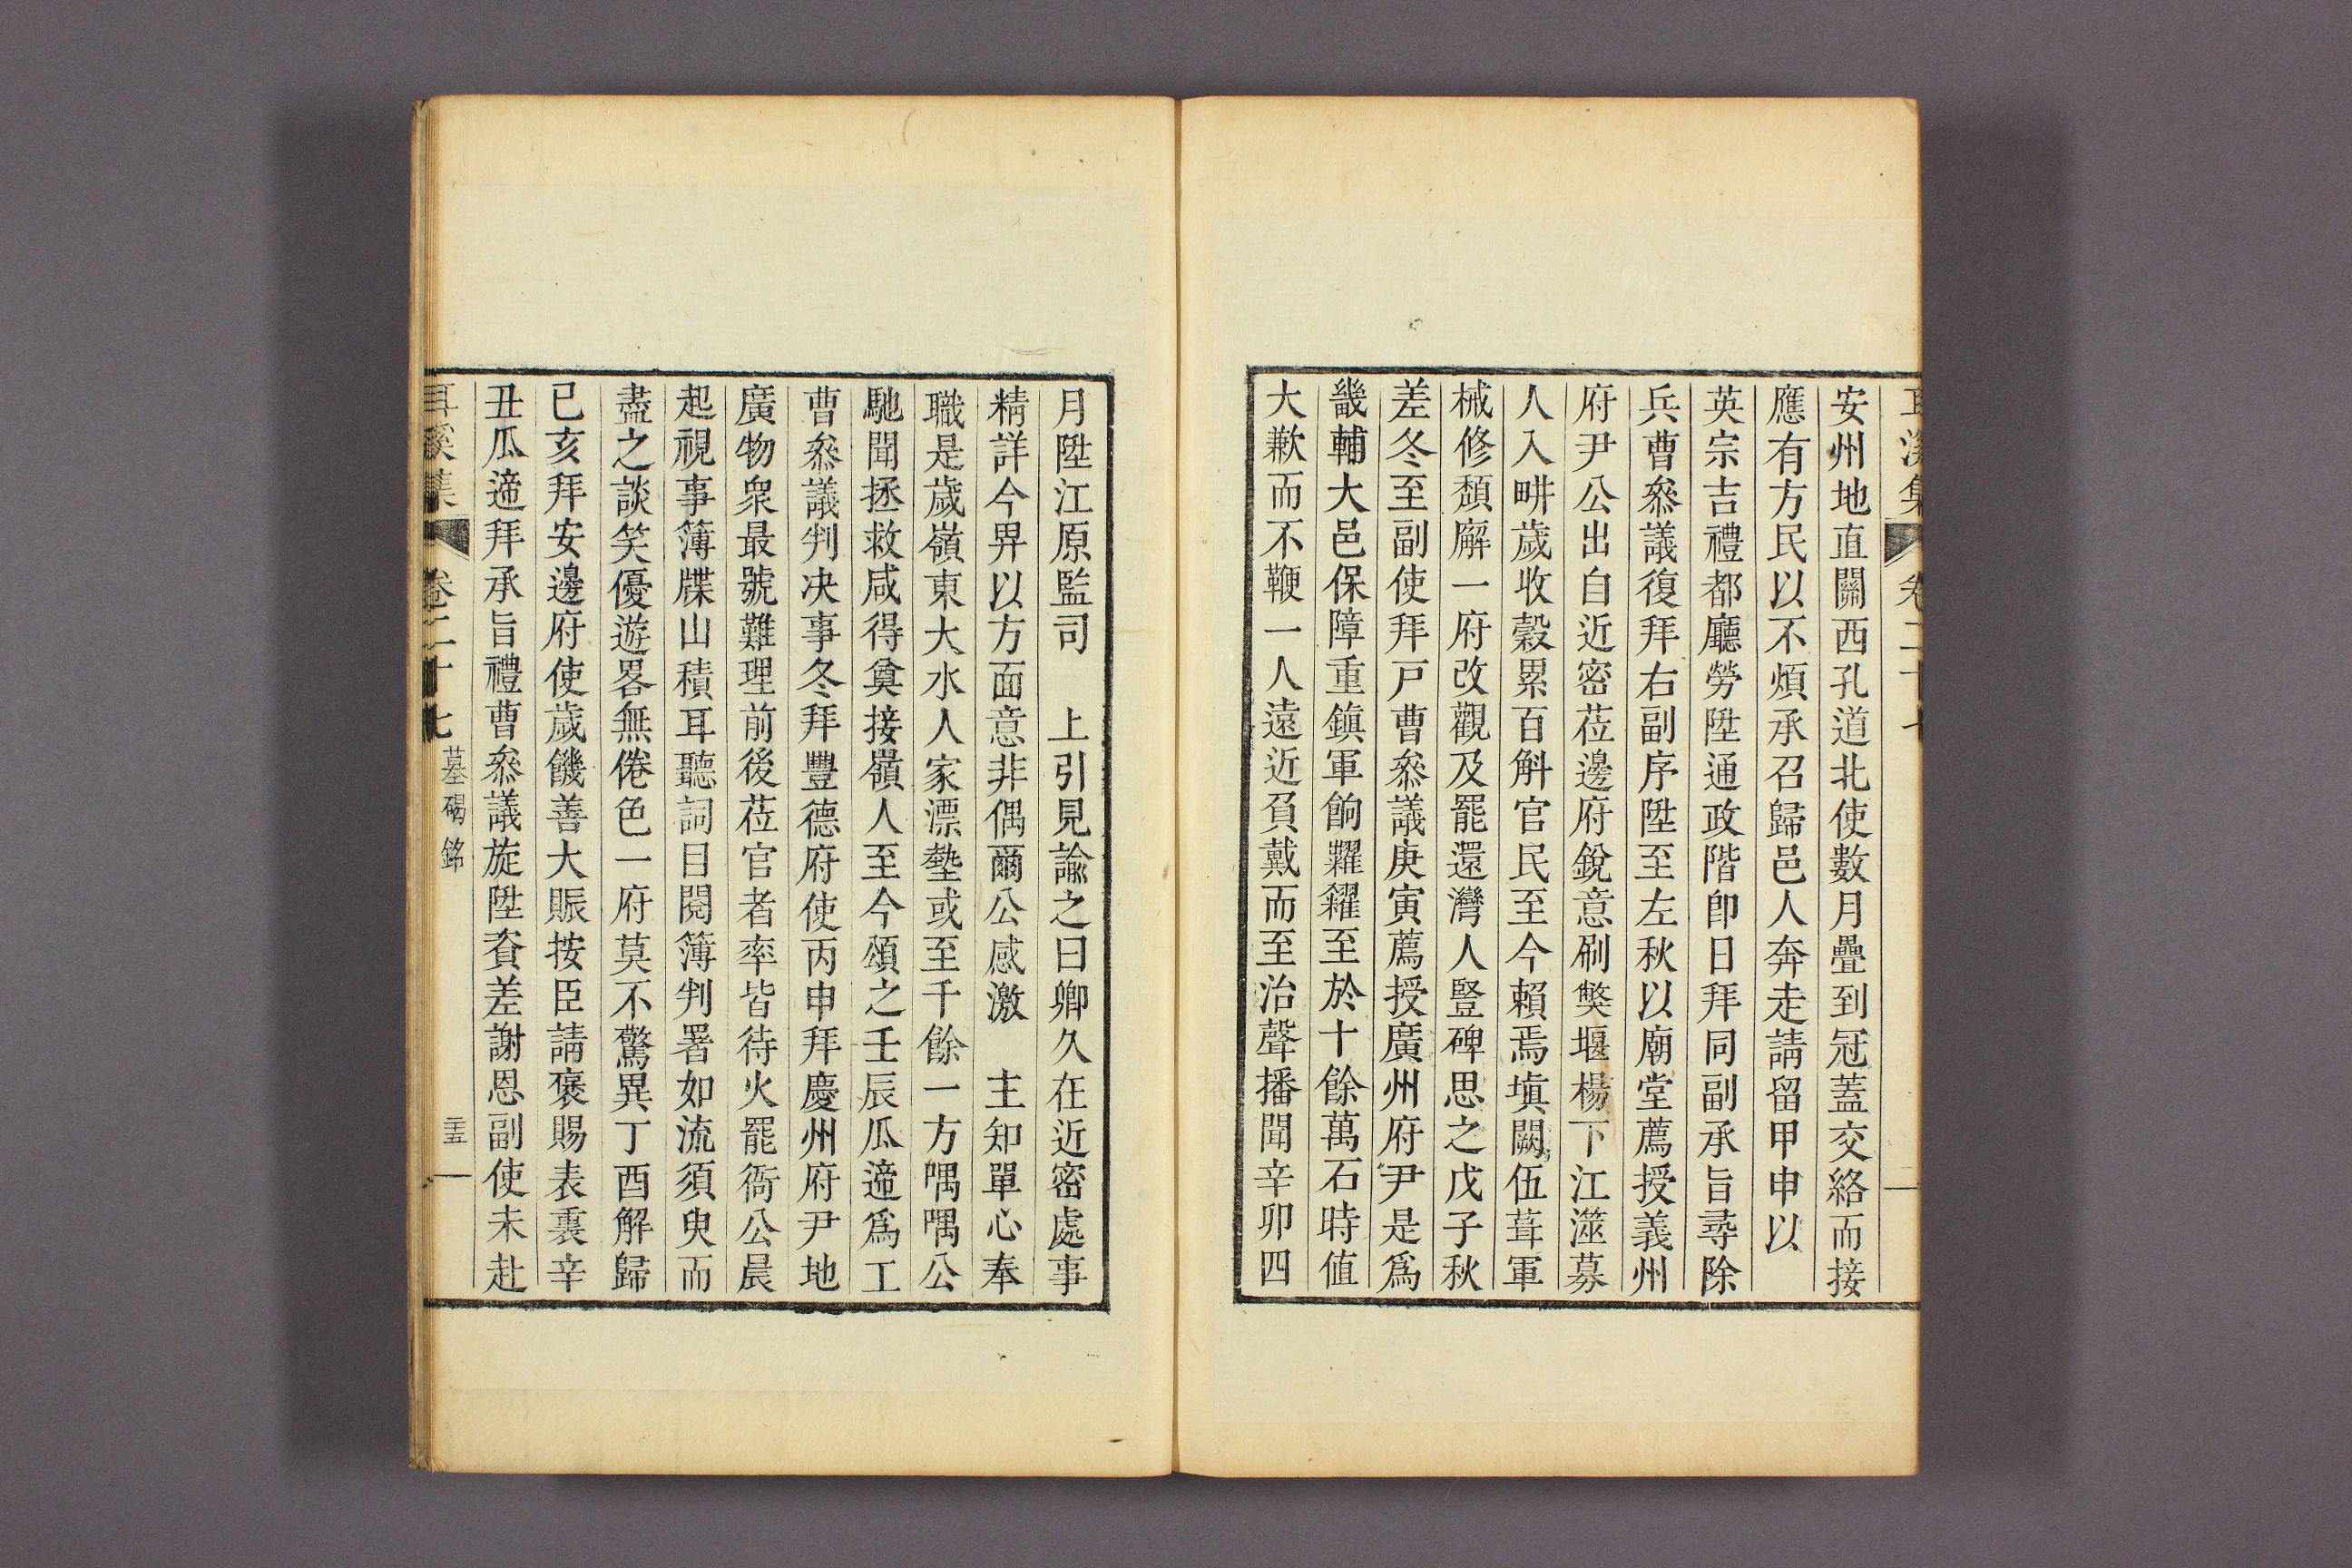 耳溪集 卷二十七
安州地直關西孔道北使數月疊到冠蓋交絡而接
應有方民以不煩承召歸邑人奔走請留甲申以
英宗吉禮都廳勞陞通政階卽日拜同副承旨尋除
兵曹叅議復拜右副序陞至左秋以廟堂薦授義州
府尹公出自近密莅邊府銳意刷獘堰楊下江滋募
人入畊歲收穀累百斛官民至今賴焉塡闕伍葺軍
械修頹廨一府改觀及罷還灣人豎碑思之戊子秋
差冬至副使拜戶曹叅議庚寅薦授廣州府尹是爲
畿輔大邑保障重鎭軍餉糶糴至於十餘萬石時値
大歉而不鞭一人遠近負戴而至治聲播聞辛卯四
月陞江原監司 上引見諭之曰卿久在近密處事
精詳今畀以方面意非偶爾公感激 主知單心奉
職是歲嶺東大水人家漂墊或至千餘一方喁喁公
馳聞拯救咸得奠接嶺人至今頌之壬辰瓜遞爲工
曹叅議判决事冬拜豐德府使丙申拜慶州府尹地
廣物衆最號難理前後莅官者率皆待火罷衙公晨
起視事簿牒山積耳聽詞目閱簿判署如流須臾而
盡之談笑優遊畧無倦色一府莫不驚異丁酉解歸
已亥拜安邊府使歲饑善大賑按臣請褒賜表裏辛
丑瓜遞拜承旨禮曹叅議旋陞資差謝恩副使未赴
耳溪集 卷二十七 墓碣銘 三五